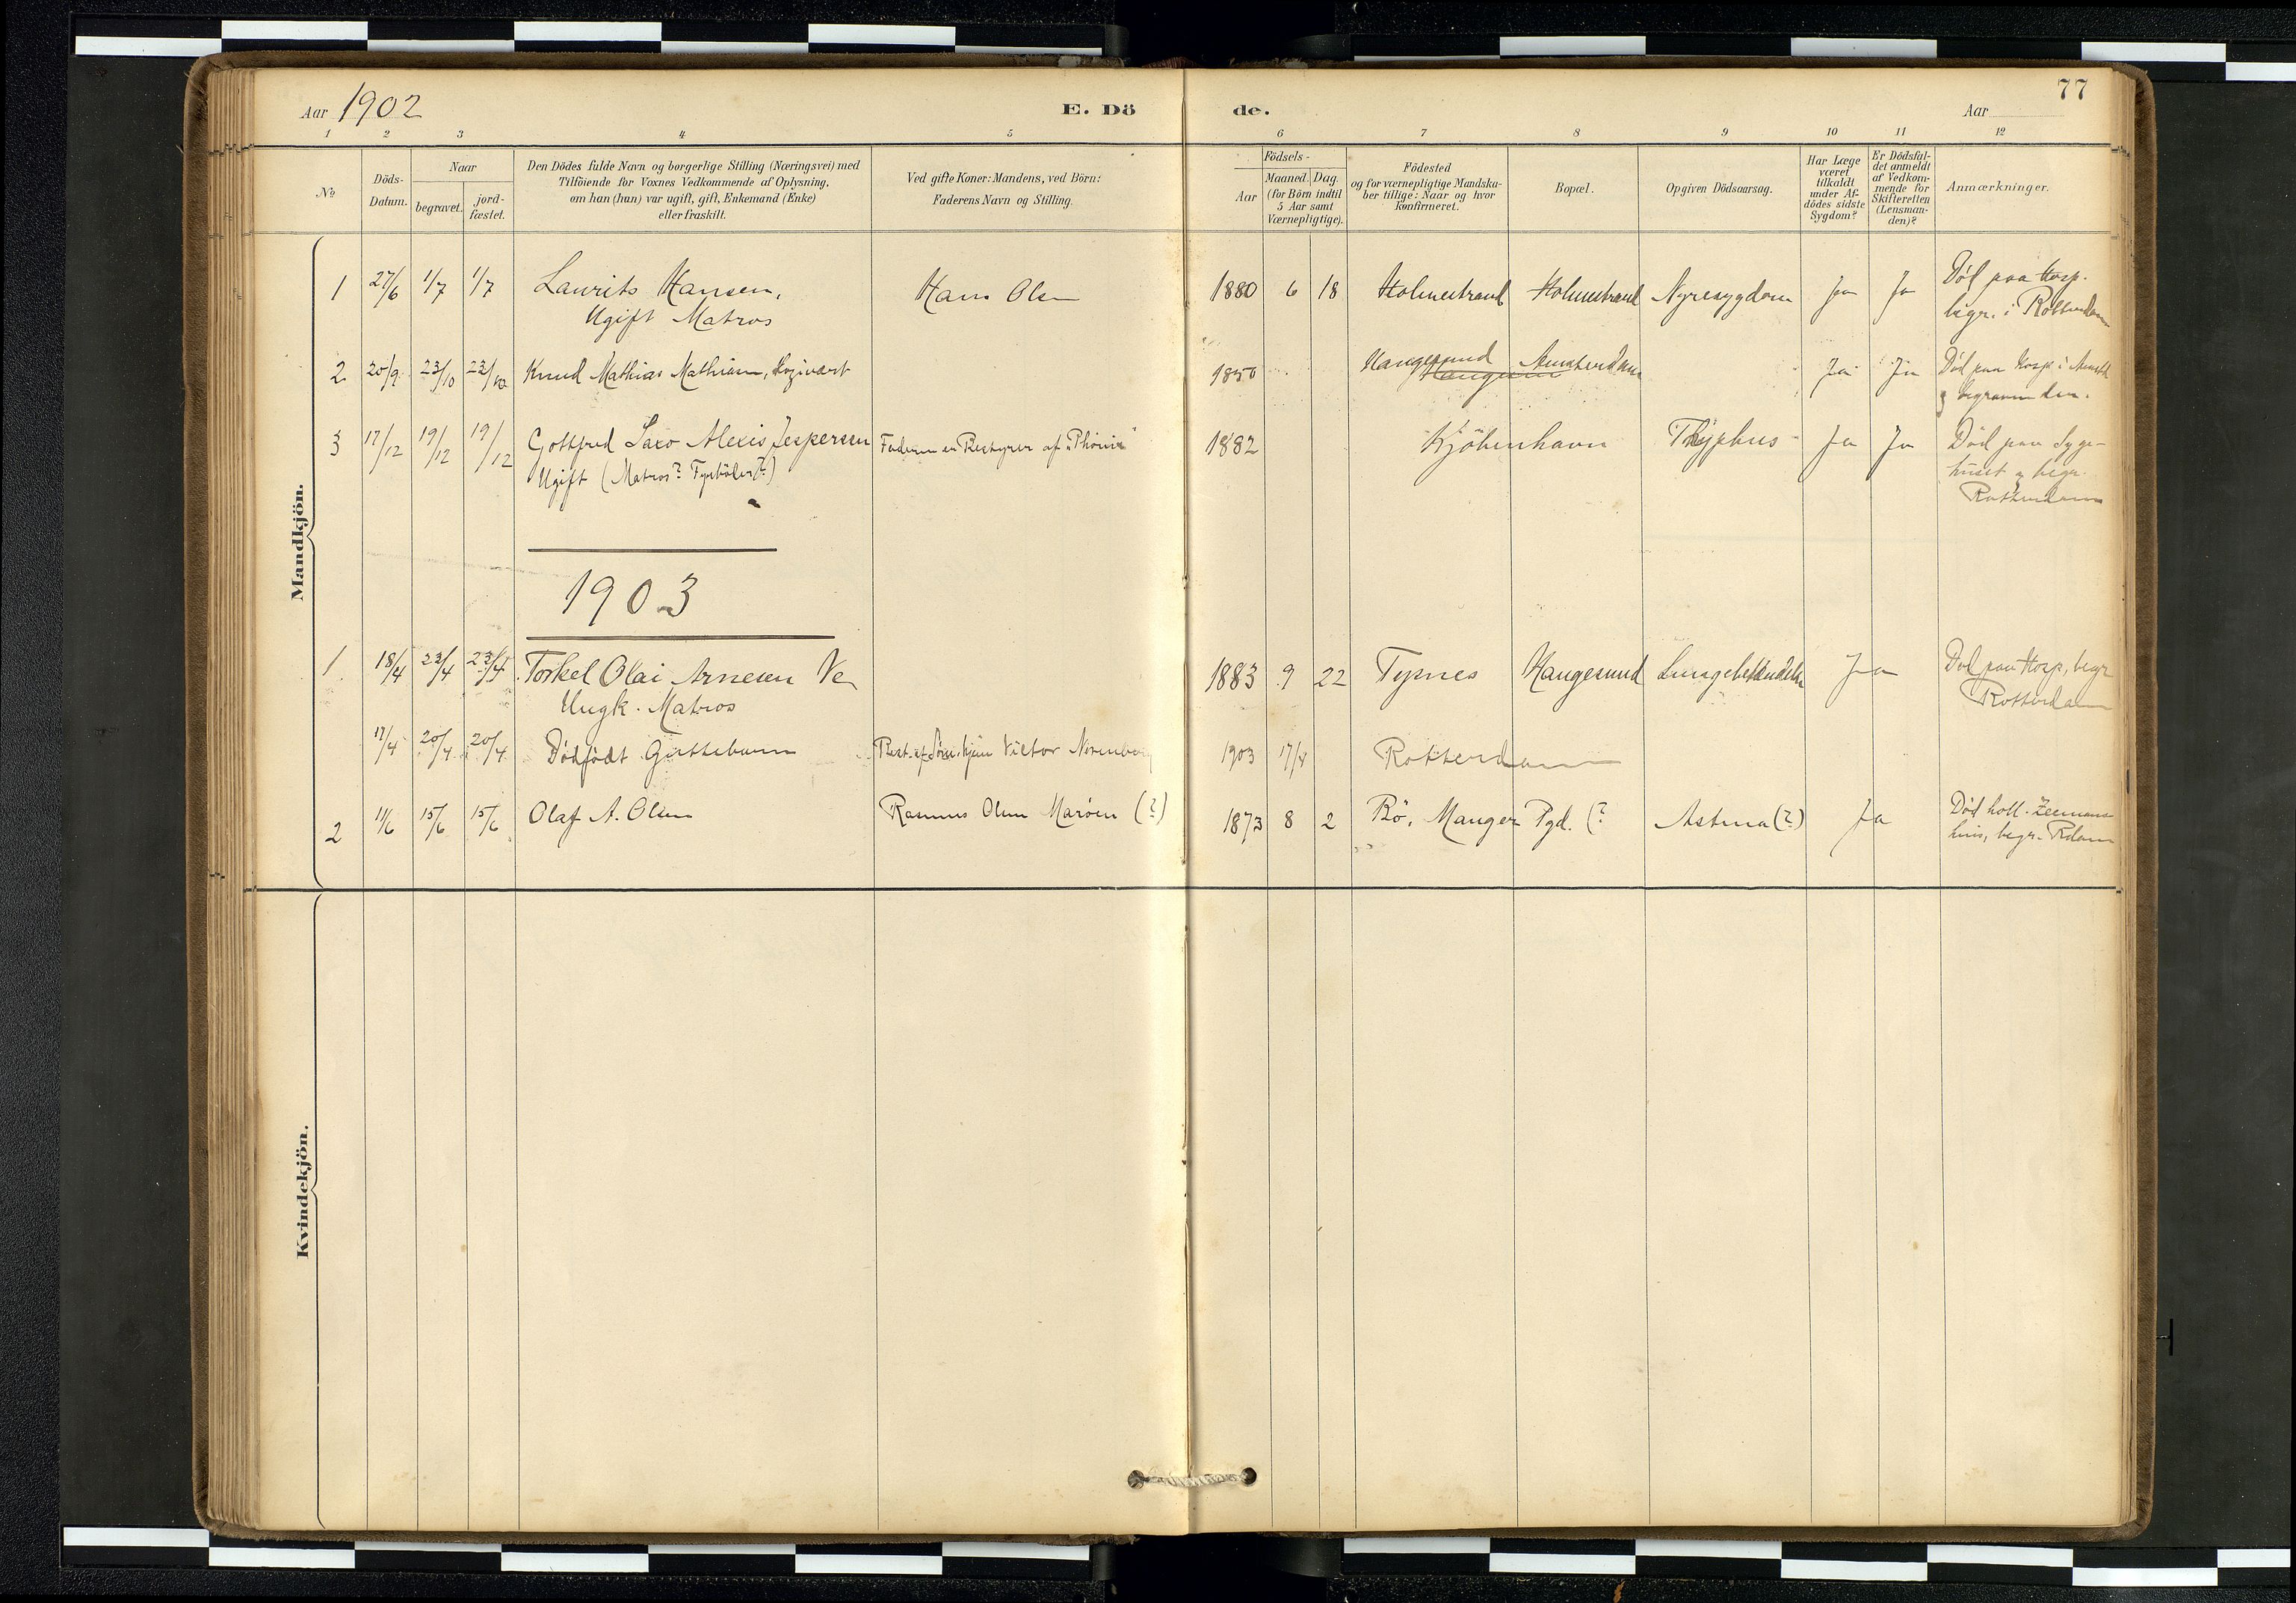 77
Aar 1902 E. Dö de. Aar
1 2 3 4 5 6 7 8 9 10 11 12
No
Döds-Datum.
Naar
begravet.
jord-fæstet.
Den Dödes fulde Navn og borgerlige Stilling (Næringsvei) med
Tilföiende for Voxnes Vedkommende af Oplysning,
om han (hun) var ugift, gift, Enkemand (Enke)
eller fraskilt.
Ved gifte Koner: Mandens, ved Börn:
Faderens Navn og Stilling.
Födsels-
Aar
Maaned. Dag.
(for Börn indtil
5 Aar samt
Værnepligtige).
Födested
og for værnepligtige Mandska-
ber tillige: Naar og hvor
konfirmeret.
Bopæl.
Opgiven Dödsaarsag.
Har Læge
været
tilkaldt
under Af-
dödes sidste
Sygdom?
Er Dödsfal-
det anmeldt
af Vedkom-
mende for
Skifteretten
(Lensman-
den)?
Anmærkninger.
Mandkjön.
1 27/6 1/7 1/7 Laurits Hansen, Hans Olsen 1880 6 18 Holmestrand Holmestrand Nyresygdom Ja Ja Död paa Hosp.
Ugift Matros begr. i Rotterdam
2 20/9 23/10 23/10 Knud Mathias Mathiasen, Logivært 1850 Haugesund Amsterdam Ja Ja Död paa Hosp i Amstd
og begraven der.
3 17/12 19/12 19/12 Gottfred Saxo Alexis Jespersen Faderen er Bestyrer af "Phönix" 1882 Kjöbenhavn Thyphus Ja Ja Död paa Syge-
Ugift (Matros? Fyrböder?) huset og begr.
Rotterdam
1903
1 18/4 23/4 23/4 Torkel Olai Arnesen Ve 1883 9 22 Tysnes Haugesund Lungebetændelse Ja Död paa Hosp, begr
Ungk. Matros Rotterdam
17/4 20/4 20/4 Dödfödt Guttebarn Best. af Viktor 1903 17/4 Rotterdam
2 11/6 15/6 15/6 Olaf A. Olsen Rasmus Olsen Maröen (?) 1873 8 2 Bö, Manger Pgd. (? Astma (?) Ja Död holl. Zeemans
huis, begr. Rdam
Kvindekjön.